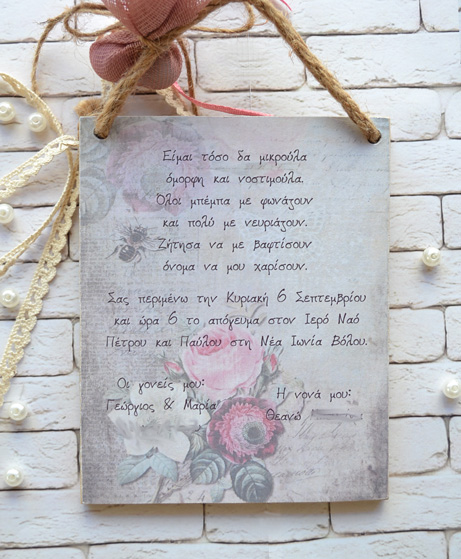 Είμαι τόσο δα μικρούλα
όμορφη και νοστιμούλα.
Όλοι μπέμπα με φωνάζουν
και πολύ με νευριάζουν.
Ζήτησα να με βαφτίσουν
όνομα να μου χαρίσουν.
Σας περιμένω την Κυριακή 6 Σεπτεμβρίου
και ώρα 6 το απόγευμα στον Ιερό Ναό
Πέτρου και Παύλου στη Νέα Ιωνία Βόλου.
Οι γονείς μου:
Γεώργιος & Μαρία
Η νονά μου:
Θεανώ